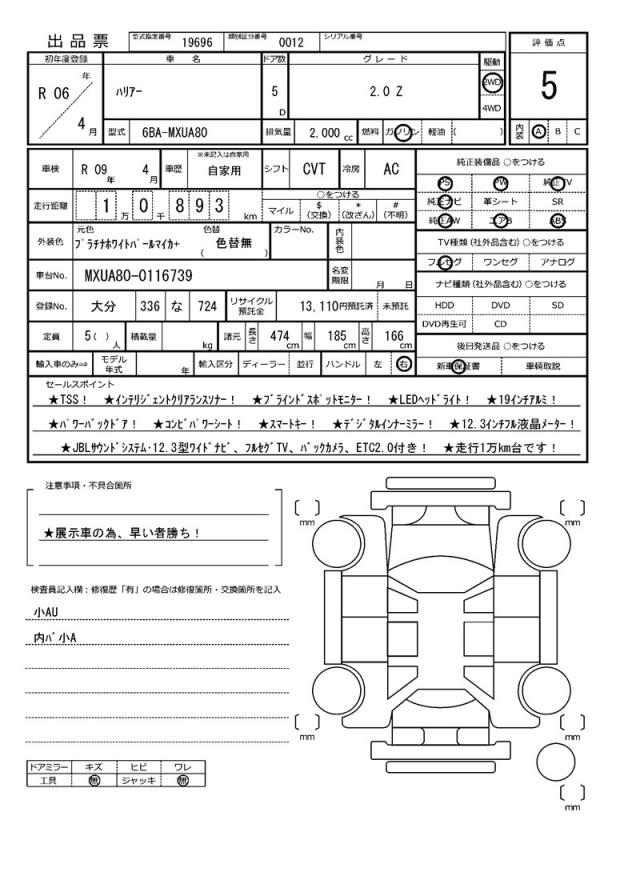 出品票
型式指定番号 19696 類別区分番号 0012 シリアル番号
評価点
5
内装 A B C
初年度登録 車名 ドア数 グレード 駆動
R 06 年 4 月
ハリアー
5 D
2.0 Z
2WD
4WD
型式 6BA-MXUA80 排気量 2,000 cc 燃料 ガソリン 軽油 ( )
車検 R 09 年 4 月 車歴 ※未記入は自家用 自家用 シフト CVT 冷房 AC
走行距離 1 万 0 千 8 9 3 km
○をつける
マイル $ (交換) * (改ざん) # (不明)
外装色 元色 プラチナホワイトパールマイカ+ 色替 ( 色替無 ) カラーNo. 内装色
車台No. MXUA80-0116739 名変期限 月 日
登録No. 大分 336 な 724 リサイクル預託金 13,110円預託済 未預託
定員 5 ( ) 人 積載量 kg 諸元 長さ 474 cm 幅 185 cm 高さ 166 cm
輸入車のみ⇒ モデル年式 年 輸入区分 ディーラー ・ 並行 ハンドル 左 ・ 右
純正装備品 ○をつける
PS PW 純正TV
純正ナビ 革シート SR
純正AW エアB ABS
TV種類 (社外品含む) ○をつける
フルセグ ワンセグ アナログ
ナビ種類 (社外品含む) ○をつける
HDD DVD SD
DVD再生可 CD
後日発送品 ○をつける
新車保証書 車輌取説
セールスポイント
★TSS! ★インテリジェントクリアランスソナー! ★ブラインドスポットモニター! ★LEDヘッドライト! ★19インチアルミ!
★パワーバックドア! ★コンビパワーシート! ★スマートキー! ★デジタルインナーミラー! ★12.3インチフル液晶メーター!
★JBLサウンドシステム・12.3型ワイドナビ、フルセグTV、バックカメラ、ETC2.0付き! ★走行1万km台です!
注意事項・不具合箇所
★展示車の為、早い者勝ち!
検査員記入欄:修復歴「有」の場合は修復箇所・交換箇所を記入
小AU
内バ小A
ドアミラー キズ ヒビ ワレ
工具 無 ジャッキ 無
mm
mm
mm
mm
mm